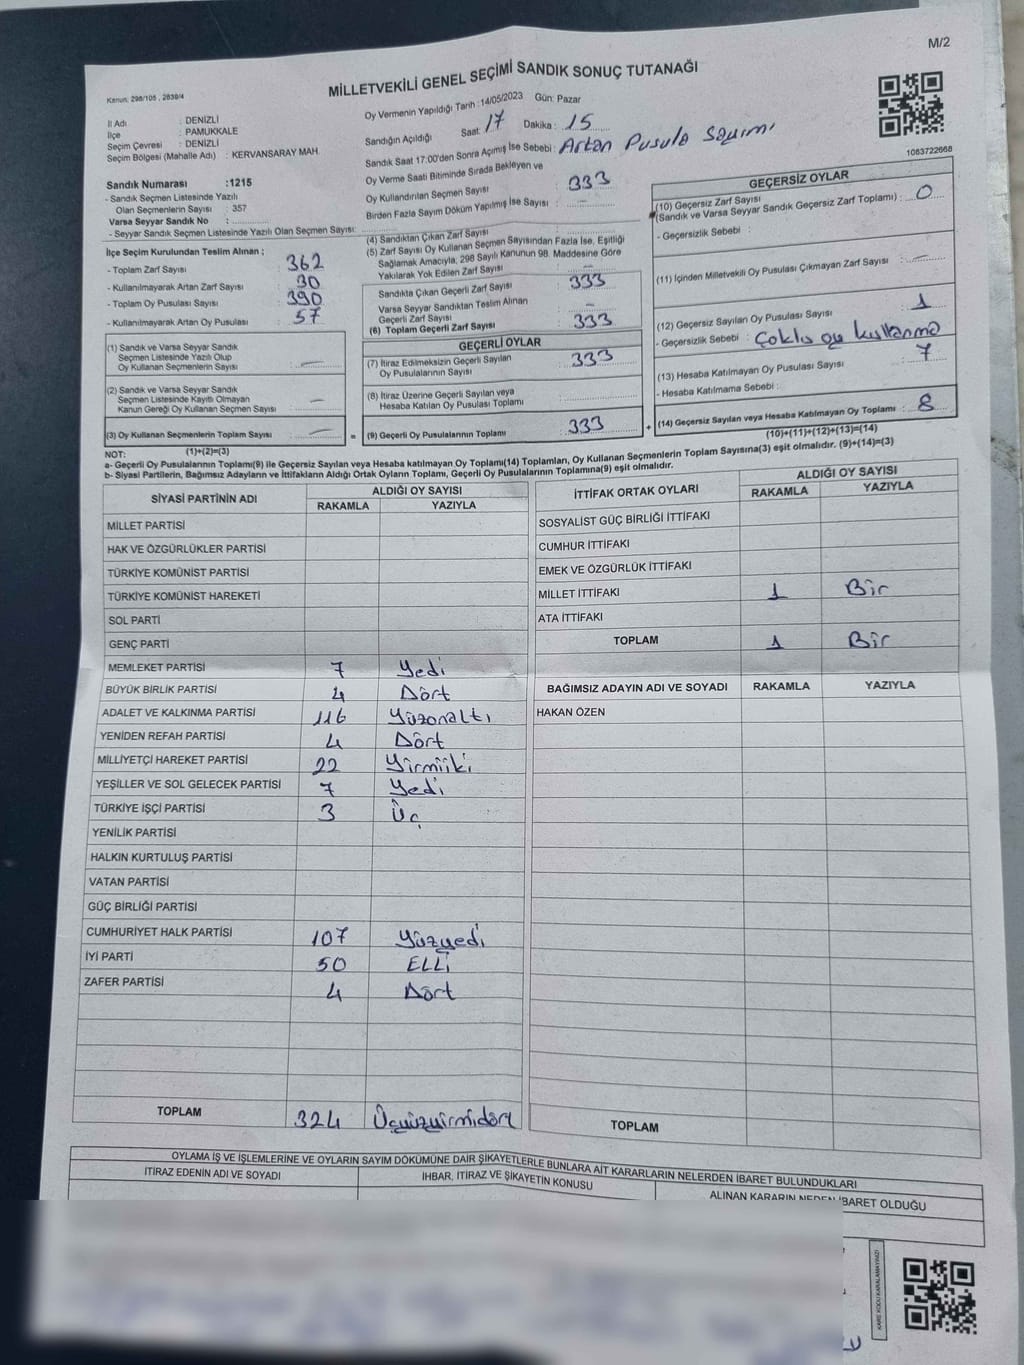 M/2
MİLLETVEKİLİ GENEL SEÇİMİ SANDIK SONUÇ TUTANAĞI
Kanun: 298/105 , 2839/4
İl Adı : DENİZLİ
İlçe : PAMUKKALE
Seçim Çevresi : DENİZLİ
Seçim Bölgesi (Mahalle Adı) : KERVANSARAY MAH.
Oy Vermenin Yapıldığı Tarih :14/05/2023 Gün: Pazar
Sandığın Açıldığı Saat: 17 Dakika : 15
Sandık Saat 17:00'den Sonra Açımış İse Sebebi : Artan Pusula Sayımı
Oy Verme Saati Bitiminde Sırada Bekleyen ve
Oy Kullandırılan Seçmen Sayısı : 333
Birden Fazla Sayım Döküm Yapılmış İse Sayısı : —
1063722668
Sandık Numarası :1215
- Sandık Seçmen Listesinde Yazılı
Olan Seçmenlerin Sayısı : 357
Varsa Seyyar Sandık No :
- Seyyar Sandık Seçmen Listesinde Yazılı Olan Seçmen Sayısı:
İlçe Seçim Kurulundan Teslim Alınan ;
- Toplam Zarf Sayısı : 362
- Kullanılmayarak Artan Zarf Sayısı : 30
- Toplam Oy Pusulası Sayısı : 390
- Kullanılmayarak Artan Oy Pusulası : 57
(1) Sandık ve Varsa Seyyar Sandık
Seçmen Listesinde Yazılı Olup
Oy Kullanan Seçmenlerin Sayısı : —
(2) Sandık ve Varsa Seyyar Sandık
Seçmen Listesinde Kayıtlı Olmayan
Kanun Gereği Oy Kullanan Seçmen Sayısı : —
(3) Oy Kullanan Seçmenlerin Toplam Sayısı : —
(1)+(2)=(3)
(4) Sandıktan Çıkan Zarf Sayısı :
(5) Zarf Sayısı Oy Kullanan Seçmen Sayısından Fazla İse, Eşitliği
Sağlamak Amacıyla, 298 Sayılı Kanunun 98. Maddesine Göre
Yakılarak Yok Edilen Zarf Sayısı : —
Sandıkta Çıkan Geçerli Zarf Sayısı : 333
Varsa Seyyar Sandıktan Teslim Alınan
Geçerli Zarf Sayısı : —
(6) Toplam Geçerli Zarf Sayısı : 333
GEÇERLİ OYLAR
(7) İtiraz Edilmeksizin Geçerli Sayılan
Oy Pusulalarının Sayısı : 333
(8) İtiraz Üzerine Geçerli Sayılan veya
Hesaba Katılan Oy Pusulası Toplamı :
= (9) Geçerli Oy Pusulalarının Toplamı : 333 +
GEÇERSİZ OYLAR
(10) Geçersiz Zarf Sayısı
(Sandık ve Varsa Seyyar Sandık Geçersiz Zarf Toplamı) : 0
- Geçersizlik Sebebi :
(11) İçinden Milletvekili Oy Pusulası Çıkmayan Zarf Sayısı : —
(12) Geçersiz Sayılan Oy Pusulası Sayısı : 1
- Geçersizlik Sebebi : Çoklu oy kullanma
(13) Hesaba Katılmayan Oy Pusulası Sayısı : 7
- Hesaba Katılmama Sebebi :
(14) Geçersiz Sayılan veya Hesaba Katılmayan Oy Toplamı : 8
(10)+(11)+(12)+(13)=(14)
NOT:
a- Geçerli Oy Pusulasının Toplamı(9) ile Geçersiz Sayılan veya Hesaba katılmayan Oy Toplamı(14) Toplamları, Oy Kullanan Seçmenlerin Toplam Sayısına(3) eşit olmalıdır. (9)+(14)=(3)
b- Siyasi Partilerin, Bağımsız Adayların ve İttifakların Aldığı Ortak Oyların Toplamı, Geçerli Oy Pusulalarının Toplamına(9) eşit olmalıdır.
SİYASİ PARTİNİN ADI ALDIĞI OY SAYISI
RAKAMLA YAZIYLA
MİLLET PARTİSİ
HAK VE ÖZGÜRLÜKLER PARTİSİ
TÜRKİYE KOMÜNİST PARTİSİ
TÜRKİYE KOMÜNİST HAREKETİ
SOL PARTİ
GENÇ PARTİ
MEMLEKET PARTİSİ 7 Yedi
BÜYÜK BİRLİK PARTİSİ 4 Dört
ADALET VE KALKINMA PARTİSİ 116 Yüzonaltı
YENİDEN REFAH PARTİSİ 4 Dört
MİLLİYETÇİ HAREKET PARTİSİ 22 Yirmiiki
YEŞİLLER VE SOL GELECEK PARTİSİ 7 Yedi
TÜRKİYE İŞÇİ PARTİSİ 3 Üç
YENİLİK PARTİSİ
HALKIN KURTULUŞ PARTİSİ
VATAN PARTİSİ
GÜÇ BİRLİĞİ PARTİSİ
CUMHURİYET HALK PARTİSİ 107 Yüzyedi
İYİ PARTİ 50 ELLİ
ZAFER PARTİSİ 4 Dört
TOPLAM 324 Üçyüzyirmidört
İTTİFAK ORTAK OYLARI ALDIĞI OY SAYISI
RAKAMLA YAZIYLA
SOSYALİST GÜÇ BİRLİĞİ İTTİFAKI
CUMHUR İTTİFAKI
EMEK VE ÖZGÜRLÜK İTTİFAKI
MİLLET İTTİFAKI 1 Bir
ATA İTTİFAKI
TOPLAM 1 Bir
BAĞIMSIZ ADAYIN ADI VE SOYADI RAKAMLA YAZIYLA
HAKAN ÖZEN
TOPLAM
OYLAMA İŞ VE İŞLEMLERİNE VE OYLARIN SAYIM DÖKÜMÜNE DAİR ŞİKAYETLERLE BUNLARA AİT KARARLARIN NELERDEN İBARET BULUNDUKLARI
İTİRAZ EDENİN ADI VE SOYADI İHBAR, İTİRAZ VE ŞİKAYETİN KONUSU ALINAN KARARIN NEDEN İBARET OLDUĞU
KARE KODU KARALAMAYINIZ!